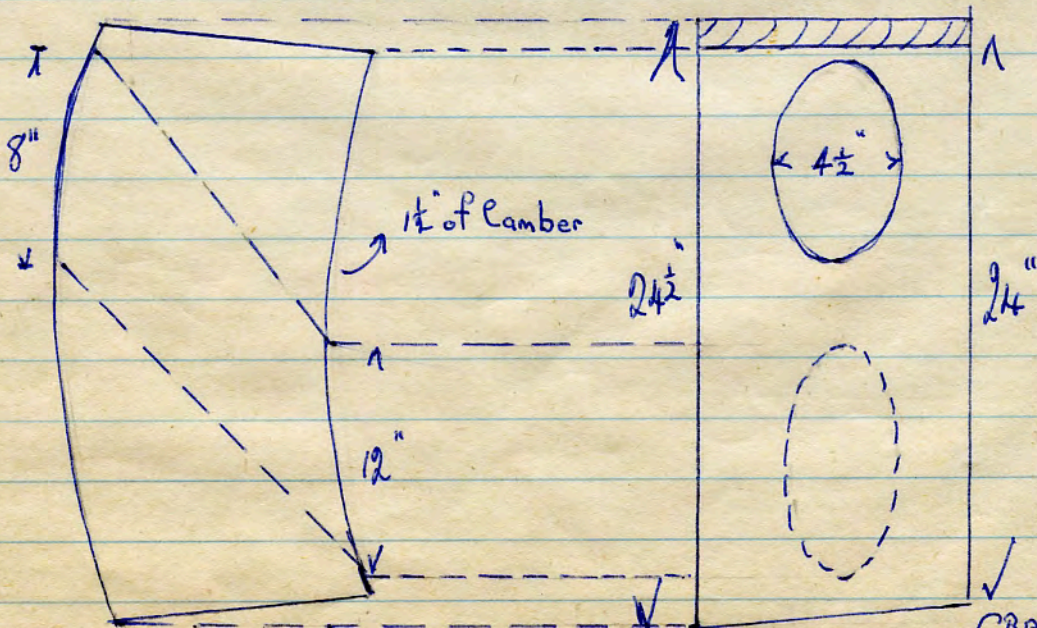 8"
1½" of Camber
4½"
24½"
24"
12"